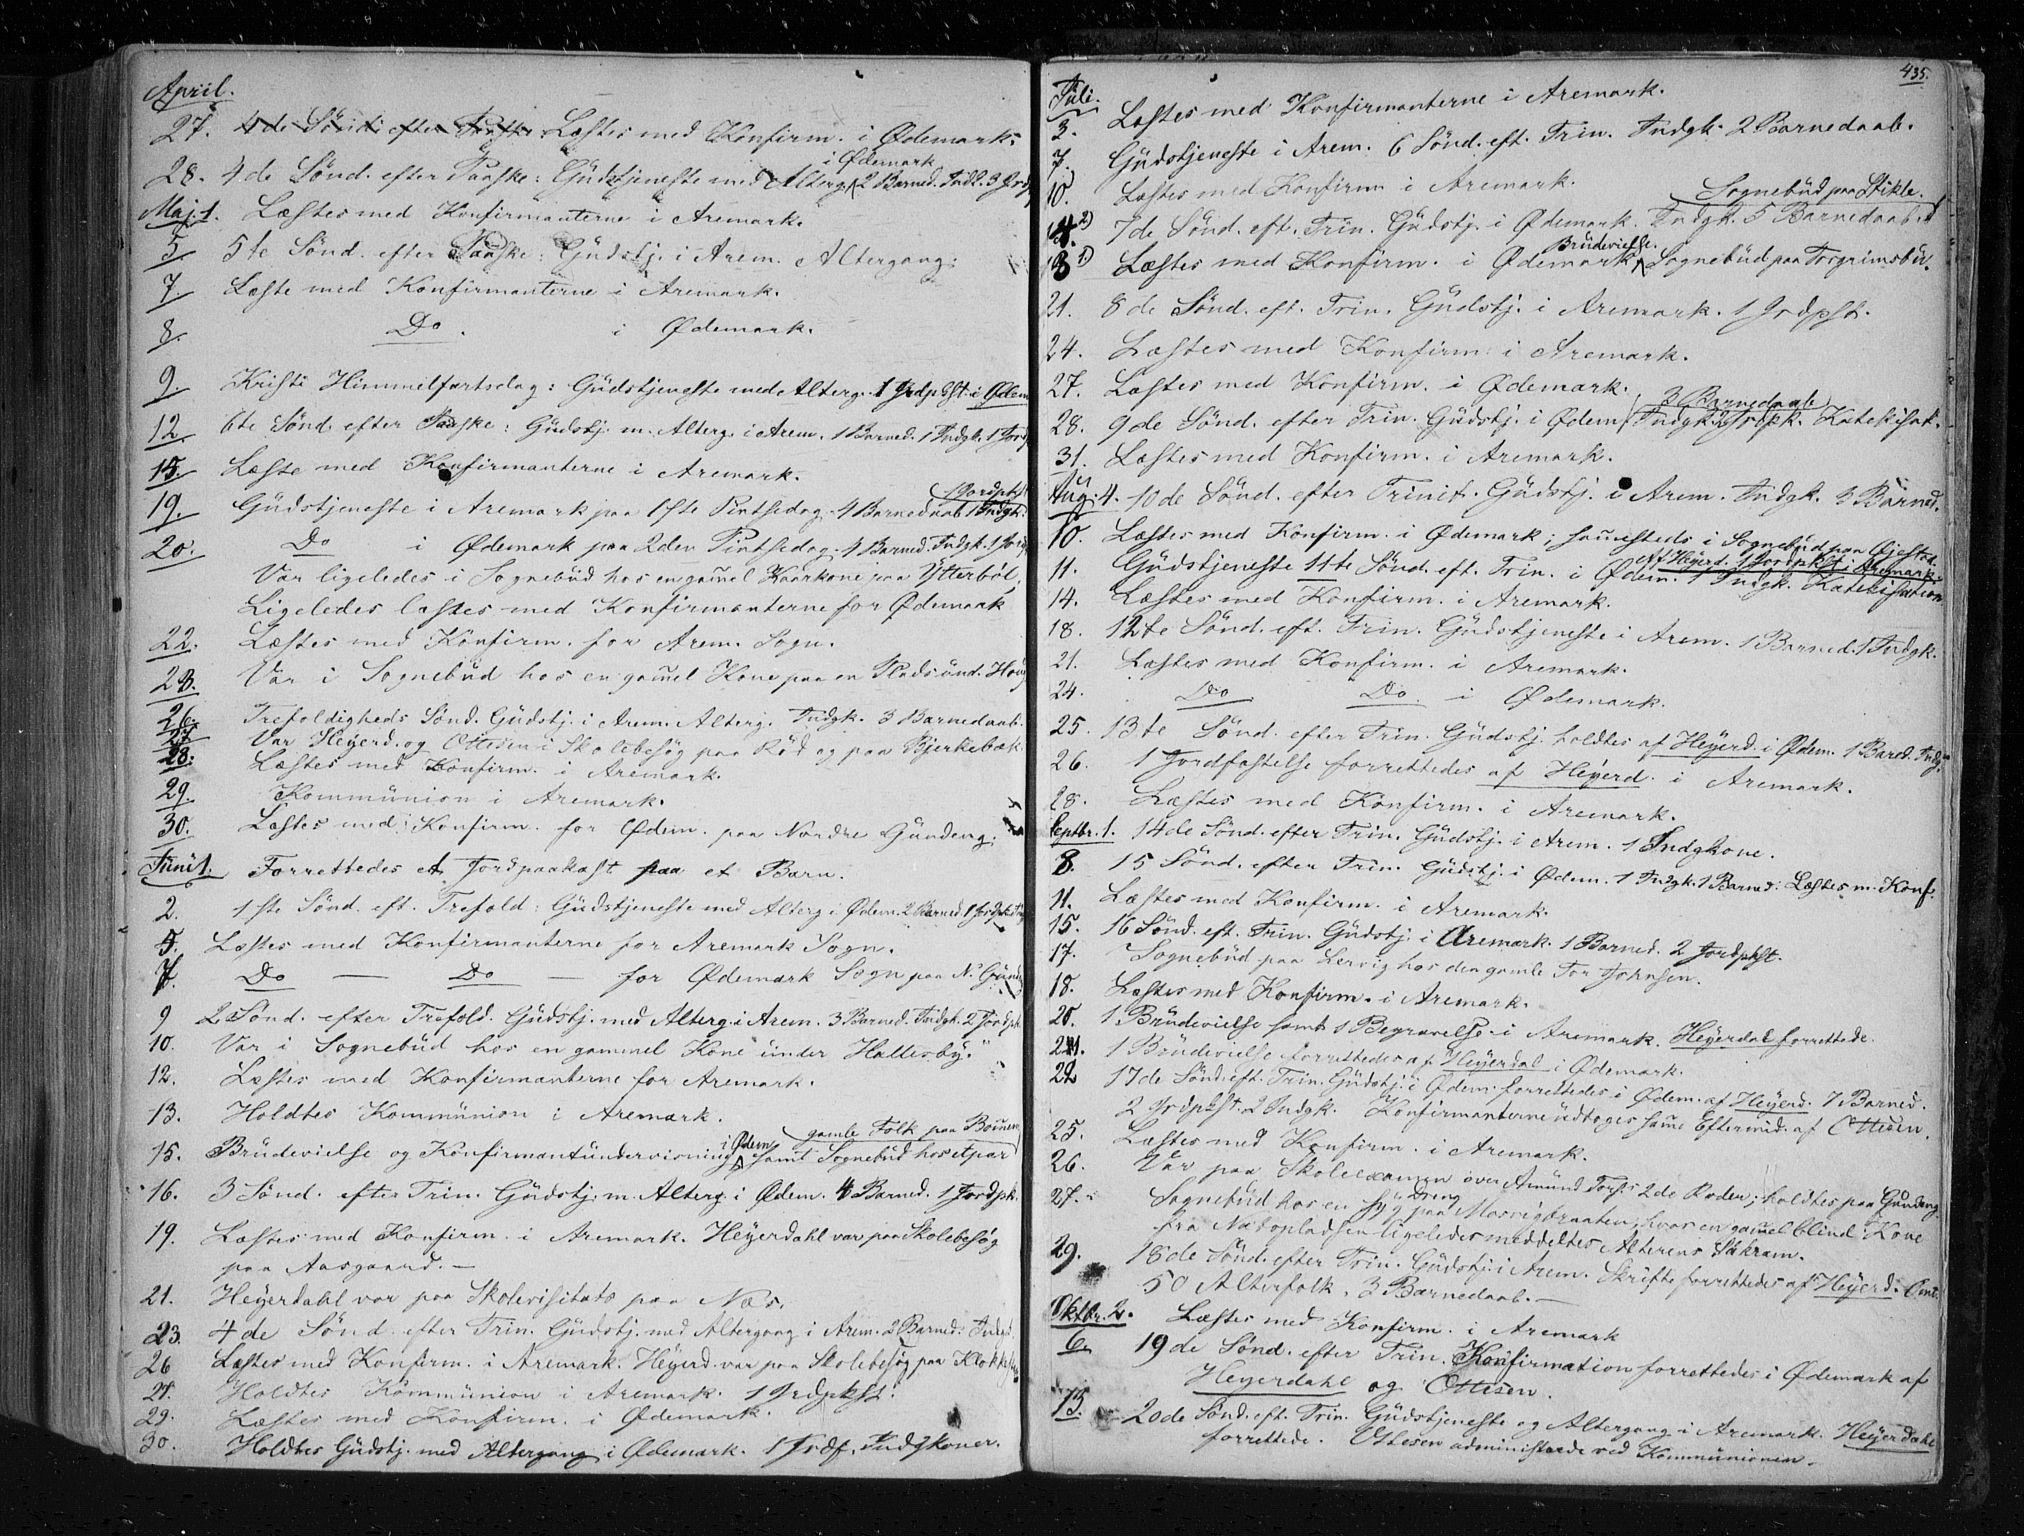 April.
27. 4de Sönd: efter Paaske. Læstes med Konfirm. i Ødemark.
28. 4de Sönd. efter Paaske: Güdstjeneste med Alterg. i Ødemark 2 Barned. Indl. 3 Jrdp
Maj 1. Læstes med Konfirmanterne i Aremark.
5 5te Sönd. efter Paaske: Güdstj. i Arem. Altergang.
7 Læste med Konfirmanterne i Aremark.
8. Do. i Ødemark.
9. Kristi Himmelfartsdag: Güdstjeneste med Alterg. 1 Jrdpkst. i Ødem
12 6te Sönd. efter Paaske: Güdstj. m. Alterg. i Arem. 1 Barned. 1 Indgk. 1 Jord
15. Læste med Konfirmanterne i Aremark.
19. Güdstjeneste i Aremark paa 1ste Pintsedag. 4 Barnedaab 1 Indgk. 1 Jordpkst
20. Do i Ødemark paa 2den Pintsedag. 4 Barned. Indgk. 1 Jord
Var ligeledes i Sognebüd hos en gamel Kaarkone paa Ytterböl,
Ligeledes læstes med Konfirmanterne for Ødemark
22. Læstes med Konfirm. for Arem. Sogn.
23. Var i Sognebüd hos en gamel Kone paa en Plads ünd. Houg
26. Trefoldigheds Sönd. Güdstj. i Arem. Alterg. Indgk. 3 Barnedaab.
27 Var Heyerd. og Ottesen i Skolebesög paa Röd og paa Bjerkebæk.
28. Læstes med Konfirm. i Aremark.
29. Kommünion i Aremark.
30. Læstes med Konfirm. for Ødem. paa Nordre Gündeng.
Juni 1. Forrettedes et Jordpaakast paa et Barn.
2. 1ste Sönd. eft. Trefold: Güdstjeneste med Alterg. i Ødem. 2 Barned. 1 Jordpk.
5. Læstes med Konfirmanterne for Aremark Sogn.
7. Do — Do — for Ødemark Sogn paa N. Günd
9 2 Sönd. efter Trefold. Güdstj. med Alterg. i Arem. 3 Barned. Indgk. 2 Jordpk
10. Var i Sognebüd hos en gammel Kone ünder Hallesby."
12. Læstes med Konfirmanterne for Aremark.
13. Holdtes Kommünion i Aremark.
15. Brüdevielse og Konfirmantündervisning i Ødem. samt Sognebüd hos et par gamle Folk paa Boünen
16. 3 Sönd. efter Trin. Güdstj. m. Alterg. i Ødem. 4 Barned. 1 Jordpk.
19. Læstes med Konfirm. i Aremark. Heyerdahl var paa Skolebesög
paa Aasgaard. —
21. Heyerdahl var paa Skolevisitats paa Næs.
23. 4de Sönd. efter Trin. Güdstj. med Altergang i Arem. 2 Barned: Indgk.
26 Læstes med Konfirm. i Aremark. Heyerd. var paa Skolebesög paa
27. Holdtes Kommünion i Aremark. 1 Jrdpkst.
29. Læstes med Konfirm. i Ødemark.
30. Holdtes Güdstj. med Altergang i Ødemark. 1 Jrdf. Indgkoner.
435.
Juli.
3. Læstes med Konfirmanterne i Aremark.
7. Güdstjeneste i Arem. 6 Sönd. eft. Trin. Indgk. 2 Barnedaab.
10. Læstes med Konfirm i Aremark.
14. 2) 7de Sönd. eft. Trin. Güdstj. i Ødemark. Indgk. 5 Barnedaab. Sognebüd paa Stikle.
13 1) Læstes med Konfirm. i Ødemark, Brüdevielse. Sognebüd paa Torgrimsbü.
21. 8de Sönd. eft. Trin. Güdstj. i Aremark. 1 Jrdpst.
24. Læstes med Konfirm. i Aremark.
27. Læstes med Konfirm. i Ødemark.
28. 9de Sönd. efter Trin. Güdstj. i Ødem. 3 Barnedaab Indgk. 2 Jrdpk. Katekisat.
31. Læstes med Konfirm. i Aremark.
Aug: 4. 10de Sönd. efter Trinit. Güdstj. i Arem. Indgk. 3 Barned.
10. Læstes med Konfirm. i Ødemark; saaesteds i Sognebüd paa Øjestad.
11. Güdstjeneste 11te Sönd. eft. Trin. i Ødem. 1 Indgk. Katekisation Af Heyerd. 1 Jordpkst. i Aremark.
14. Læstes med Konfirm. i Aremark.
18. 12te Sönd. eft. Trin. Güdstjeneste i Arem. 1 Barned. 1 Indgk.
21. Læstes med Konfirm. i Aremark.
24. Do Do i Ødemark.
25. 13te Sönd. efter Trin. Güdstj. holdtes af Heyerd. i Ødem. 1 Barnd. Indg
26. 1 Jordfæstelse forrettedes af Heyerd. i Aremark.
28. Læstes med Konfirm. i Aremark.
Septbr. 1. 14de Sönd. efter Trin. Güdstj. i Arem. 1 Indgkone.
8. 15 Sönd. efter Trin. Güdstj. i Ødem. 1 Indgk. 1 Barned: Læstes m. Konf.
11. Læstes med Konfirm. i Aremark.
15. 16 Sönd. eft. Trin. Güdstj. i Aremark. 1 Barned. 2 Jordpkst.
17. Sognebüd paa Lervig hos den gamle Tor Johnsen.
18. Læstes med Konfirm. i Aremark.
20. 1 Brüdevielse samt 1 Begravelse i Aremark. Heyerdal forrettede.
21. 1 Brüdevielse forrettedes af Heyerdal i Ødemark.
22 17de Sönd. eft. Trin. Güdstj. i Ødem. forrettedes i Ødem. af Heyerd. 7 Barned.
2 Jrdpkst. 2 Indgk. Konfirmanterne üdtoges same Eftermid. af Ottesen.
25. Læstes med Konfirm. i Aremark.
26. Var paa Skoleexamen over Amünd Torps 2de Roder; holdtes paa Gündeng.
27. Sognebüd hos en syg Dreng paa Mosvigbraaten, hvor en gamel blind Kone
fra Nabopladsen ligeledes meddeltes Alterens Sakram.
29. 18de Sönd. efter Trin. Güdstj. i Arem. Skrifte forrettedes af Heyerd.
50 Alterfolk. 3 Barnedaab. —
Oktbr. 2. Læstes med Konfirm. i Aremark
6. 19de Sönd. efter Trin. Konfirmation forrettedes i Ødemark af
Heyerdahl og Ottesen.
13. 20de Sönd. eft. Trin. Güdstjeneste og Altergang i Aremark. Heyerdahl
forrettede. Ottesen administrerede ved Kommünionen.